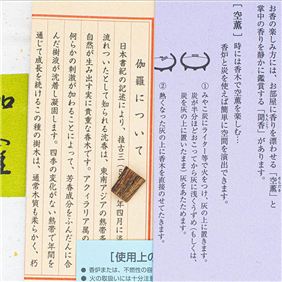 お香の楽しみ方には、お部屋に香りを漂わせる「空薫」と
掌中の香りを静かに鑑賞する「聞香」があります。
［空薫］時には香木で空薫を楽しむ…
香炉と炭を使えば簡単に空間を演出できます。
①みやこ炭にライター等で火をつけ、灰の上に置きます。
炭が半分ほどおこってから灰に浅くうずめ（もしくは、
炭を灰の上に置いたまま）灰をあたためます。
②熱くなった灰の上に香木を直接のせてたきます。
伽羅について
日本書紀の記述により、推古三
年四月に淡
流れついたとして知られる沈香は、東南アジアの熱帯
自然が生み出す実に貴重な香木です。アクィラリア属の
何らかの刺激が加わることによって、芳香成分をふんだんに含
んだ樹液が沈着し凝固します。四季の変化がない熱帯で年間を
通じて成長を続けるこの種の樹木は、通常木質も柔らかく、朽
［使用上の
● 香炉または、不燃性の容
● 火の取扱いには十分注意